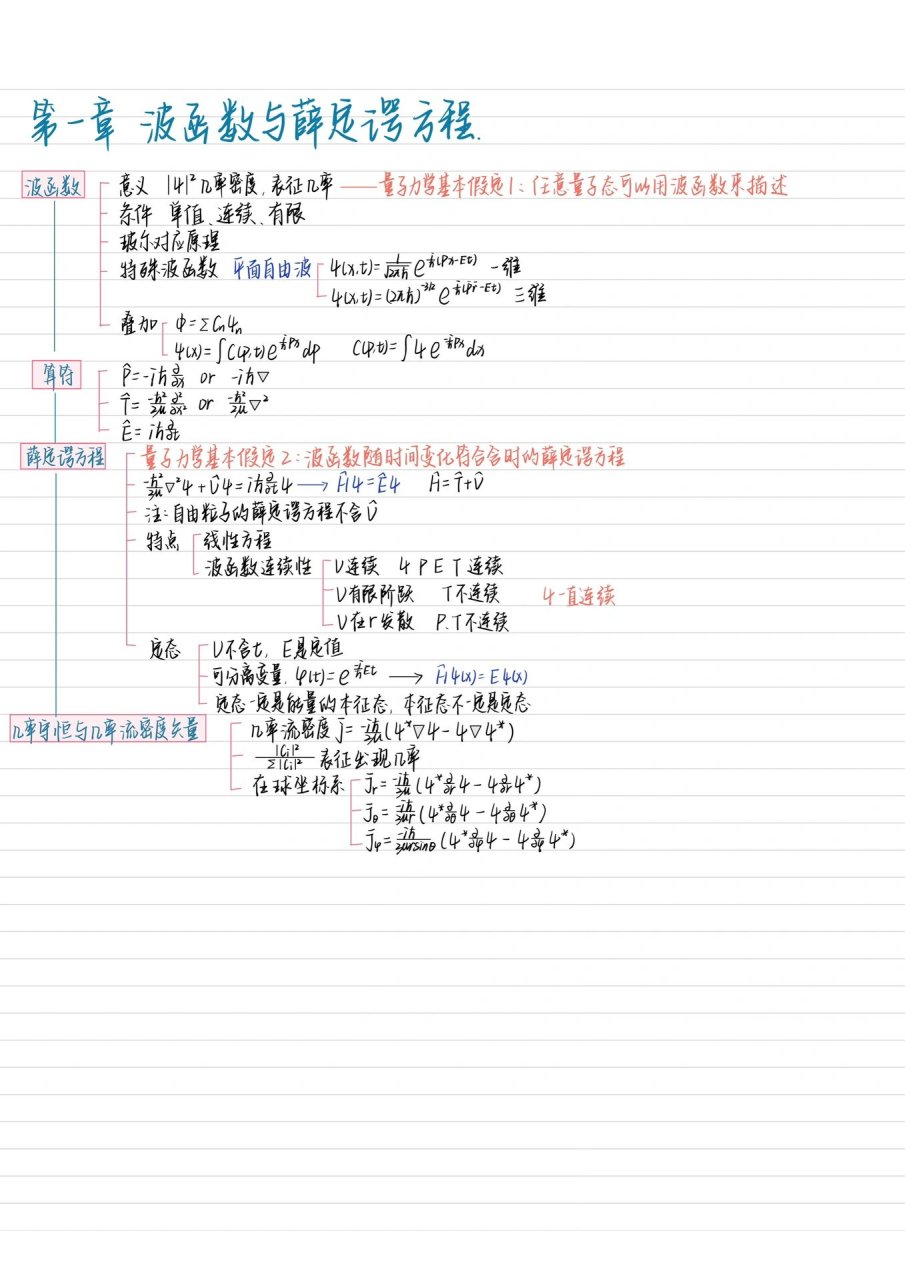 第一章 波函数与薛定谔方程.
波函数 意义 |ψ|² 几率密度,表征几率 —— 量子力学基本假定1:任意量子态可以用波函数来描述
条件 单值、连续、有限
玻尔对应原理
特殊波函数 平面自由波 ψ(x,t)=1/√(2πħ) e^{i/ħ(Px-Et)} 一维
ψ(x,t)=(2πħ)^{-3/2} e^{i/ħ(p⃗r⃗-Et)} 三维
叠加 Φ=ΣCₙψₙ
ψ(x)=∫C(p,t)e^{i/ħ Px}dp C(p,t)=∫ψe^{i/ħ Px}dx
算符 P̂=-iħ ∂/∂x or -iħ∇
T̂=-ħ²/2μ ∂²/∂x² or -ħ²/2μ ∇²
Ê=iħ ∂/∂t
薛定谔方程 量子力学基本假定2:波函数随时间变化符合含时的薛定谔方程
-ħ²/2μ ∇²ψ+Ûψ=iħ ∂/∂t ψ → Ĥψ=Êψ Ĥ=T̂+Û
注:自由粒子的薛定谔方程不含Û
特点 线性方程
波函数连续性 U连续 ψ P E T 连续
U有限阶跃 T不连续 ψ一直连续
U在r发散 P.T不连续
定态 U不含t, E是定值
可分离变量. φ(t)=e^{-i/ħ Et} → Ĥψ(x)=Eψ(x)
定态一定是能量的本征态,本征态不一定是定态
几率守恒与几率流密度矢量 几率流密度 j⃗=-iħ/2μ(ψ*∇ψ-ψ∇ψ*)
|Cᵢ|²/Σ|Cᵢ|² 表征出现几率
在球坐标系 j⃗r=-iħ/2μ(ψ*∂/∂rψ-ψ∂/∂rψ*)
j⃗θ=-iħ/2μr(ψ*∂/∂θψ-ψ∂/∂θψ*)
j⃗φ=-iħ/2μrsinθ(ψ*∂/∂φψ-ψ∂/∂φψ*)